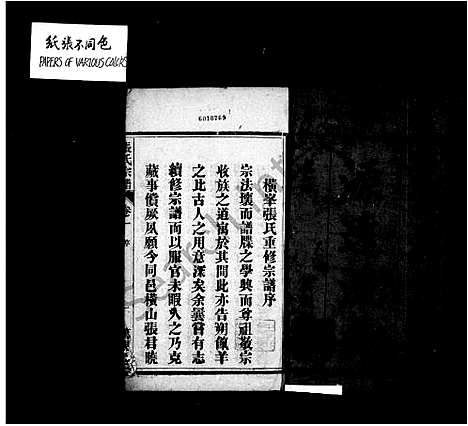 紙張不同色
PAPERS OF VARIOUS COLORS
6018769
橫峯張氏重修宗譜序
宗法壞而譜牒之學興而尊祖敬宗
收族之道寓於其間此亦告朔餼羊
之比古人之用意深矣余曩嘗有志
續修宗譜而以服官未暇久之乃克
蕆事償厥夙願今同邑橫山張君曉
張氏宗譜
卷一
序